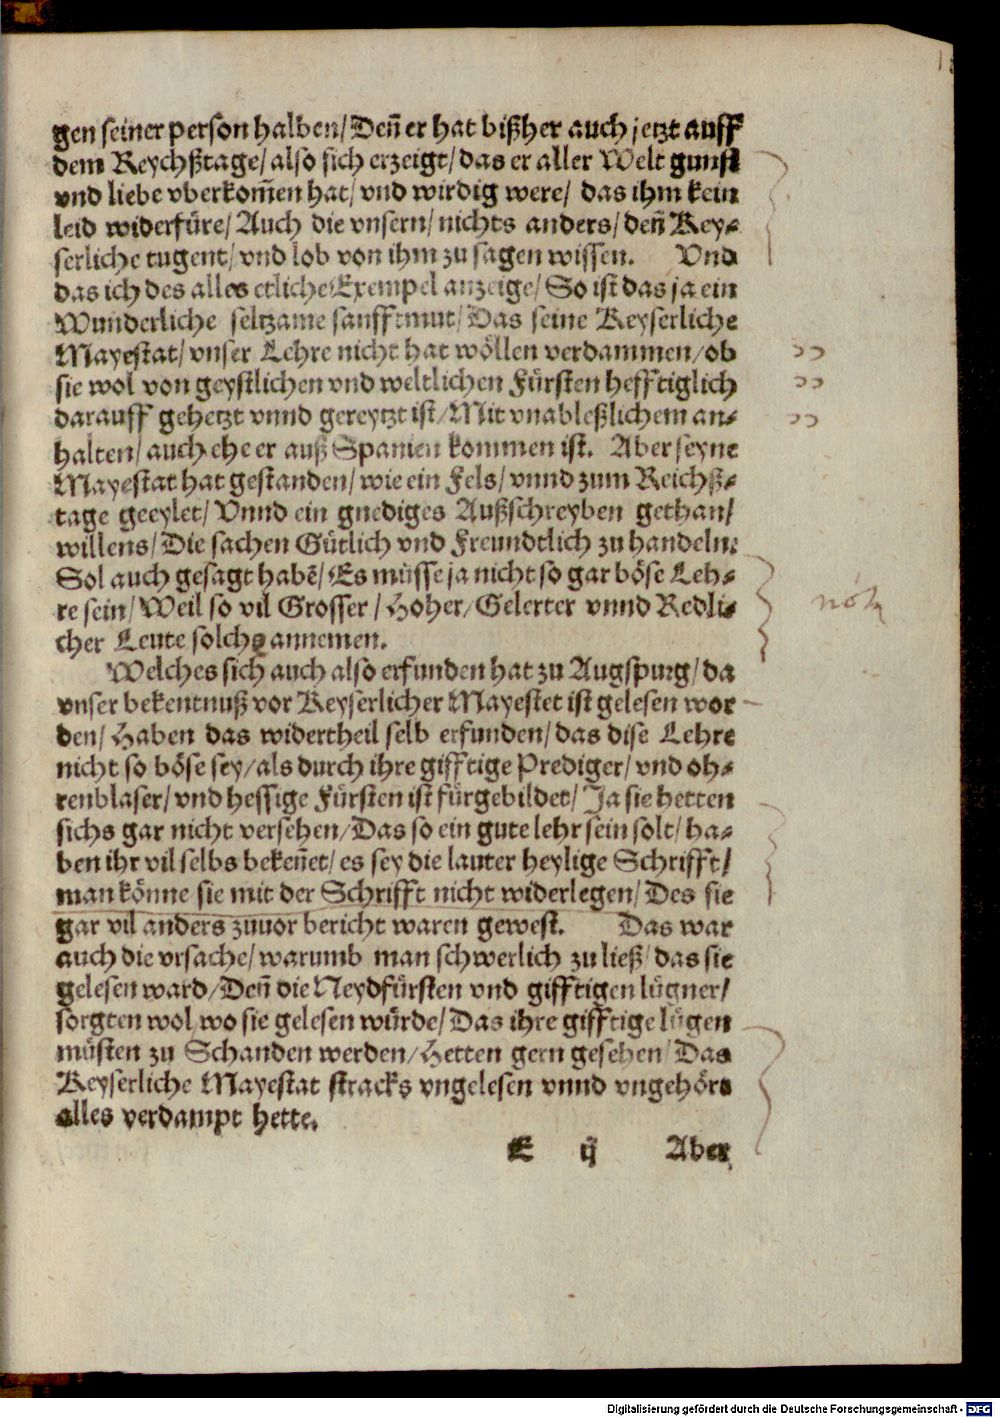 gen seiner person halben/ Deñ er hat bißher auch jetzt auff
dem Reychßtage/ also sich erzeigt/ das er aller Welt gunst
vnd liebe vberkom̃en hat/ vnd wirdig were/ das ihm kein
leid widerfüre/ Auch die vnsern/ nichts anders/ deñ Key⸗
serliche tugent/ vnd lob von ihm zu sagen wissen. Vnd
das ich des alles etliche Exempel anzeige/ So ist das ja ein
Wunderliche seltzame sanfftmut/ Das seine Keyserliche
Mayestat/ vnser Lehre nicht hat wöllen verdammen/ ob
sie wol von geystlichen vnd weltlichen Fürsten hefftiglich
darauff gehetzt vnnd gereytzt ist/ Mit vnableßlichem an⸗
halten/ auch ehe er auß Spanien kommen ist. Aber seyne
Mayestat hat gestanden/ wie ein Fels/ vnnd zum Reichß⸗
tage geeylet/ Vnnd ein gnediges Außschreyben gethan/
willens/ Die sachen Gütlich vnd Freundtlich zu handeln.
Sol auch gesagt habẽ/ Es müsse ja nicht so gar böse Leh⸗
re sein/ Weil so vil Grosser/ Hoher/ Gelerter vnnd Redli⸗
cher Leute solchs annemen.
nota
Welches sich auch also erfunden hat zu Augspurg/ da
vnser bekentnuß vor Keyserlicher Mayestet ist gelesen wor
den/ Haben das widertheil selb erfunden/ das dise Lehre
nicht so böse sey/ als durch ihre gifftige Prediger/ vnd oh⸗
renblaser/ vnd hessige Fürsten ist fürgebildet/ Ja sie hetten
sichs gar nicht versehen/ Das so ein gute lehr sein solt/ ha⸗
ben ihr vil selbs bekeñet/ es sey die lauter heylige Schrifft/
man könne sie mit der Schrifft nicht widerlegen/ Des sie
gar vil anders zuuor bericht waren gewest. Das war
auch die vrsache/ warumb man schwerlich zu ließ/ das sie
gelesen ward/ Deñ die Neydfürsten vnd gifftigen lügner/
sorgten wol/ wo sie gelesen würde/ Das ihre gifftige lügen
müsten zu Schanden werden/ Hetten gern gesehen/ Das
Keyserliche Mayestat stracks vngelesen vnnd vngehört
alles verdampt hette.
E ij Aber
Digitalisierung gefördert durch die Deutsche Forschungsgemeinschaft - DFG